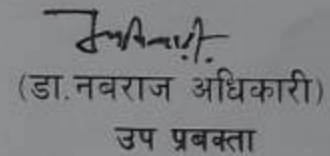 (डा.नवराज अधिकारी)
उप प्रबक्ता